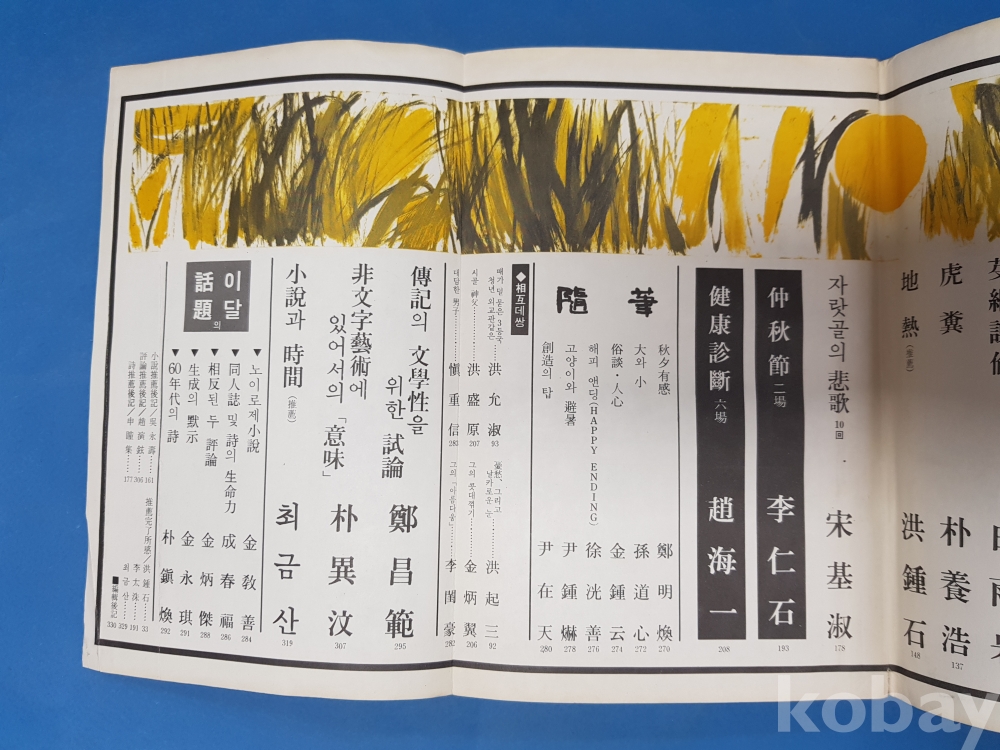 虎糞
朴養浩
137
地熱
(推薦)
洪鍾石
148
자랏골의 悲歌 10回
宋基淑
178
仲秋節 二場
李仁石
193
健康診斷 六場
趙海一
208
隨筆
秋夕有感
鄭明煥
270
大와 小
孫道心
272
俗談·人心
金鍾云
274
해피 앤딩(HAPPY ENDING)
徐洸善
276
고양이와 避暑
尹鍾爀
278
創造의 탑
尹在天
280
◆相互데쌍
때가 덜 묻은 3등국
청년 외교관같은
洪允淑
93
憂愁、그리고
날카로운 눈
洪起三
92
시골 神父
洪盛原
207
그의 풋대잽기
金炳翼
206
대담한 男子
愼重信
283
그의 「아름다움」
李閨豪
282
傳記의 文學性을
위한 試論
鄭昌範
295
非文字藝術에
있어서의 「意味」
朴異汶
307
小說과 時間
(推薦)
최금산
319
이달의 話題
▼노이로제小說
金敎善
284
▼同人誌 및 詩의 生命力
成春福
286
▼相反된 두 評論
金炳傑
288
▼生成의 默示
金永琪
291
▼60年代의 詩
朴鎭煥
292
小說推薦後記/吳永壽……161
評論推薦後記/趙演鉉……306
詩推薦後記/申瞳集……177
推薦完了所感/洪鍾石……33
李太洙……191
최금산……329
■編輯後記
330
kobay